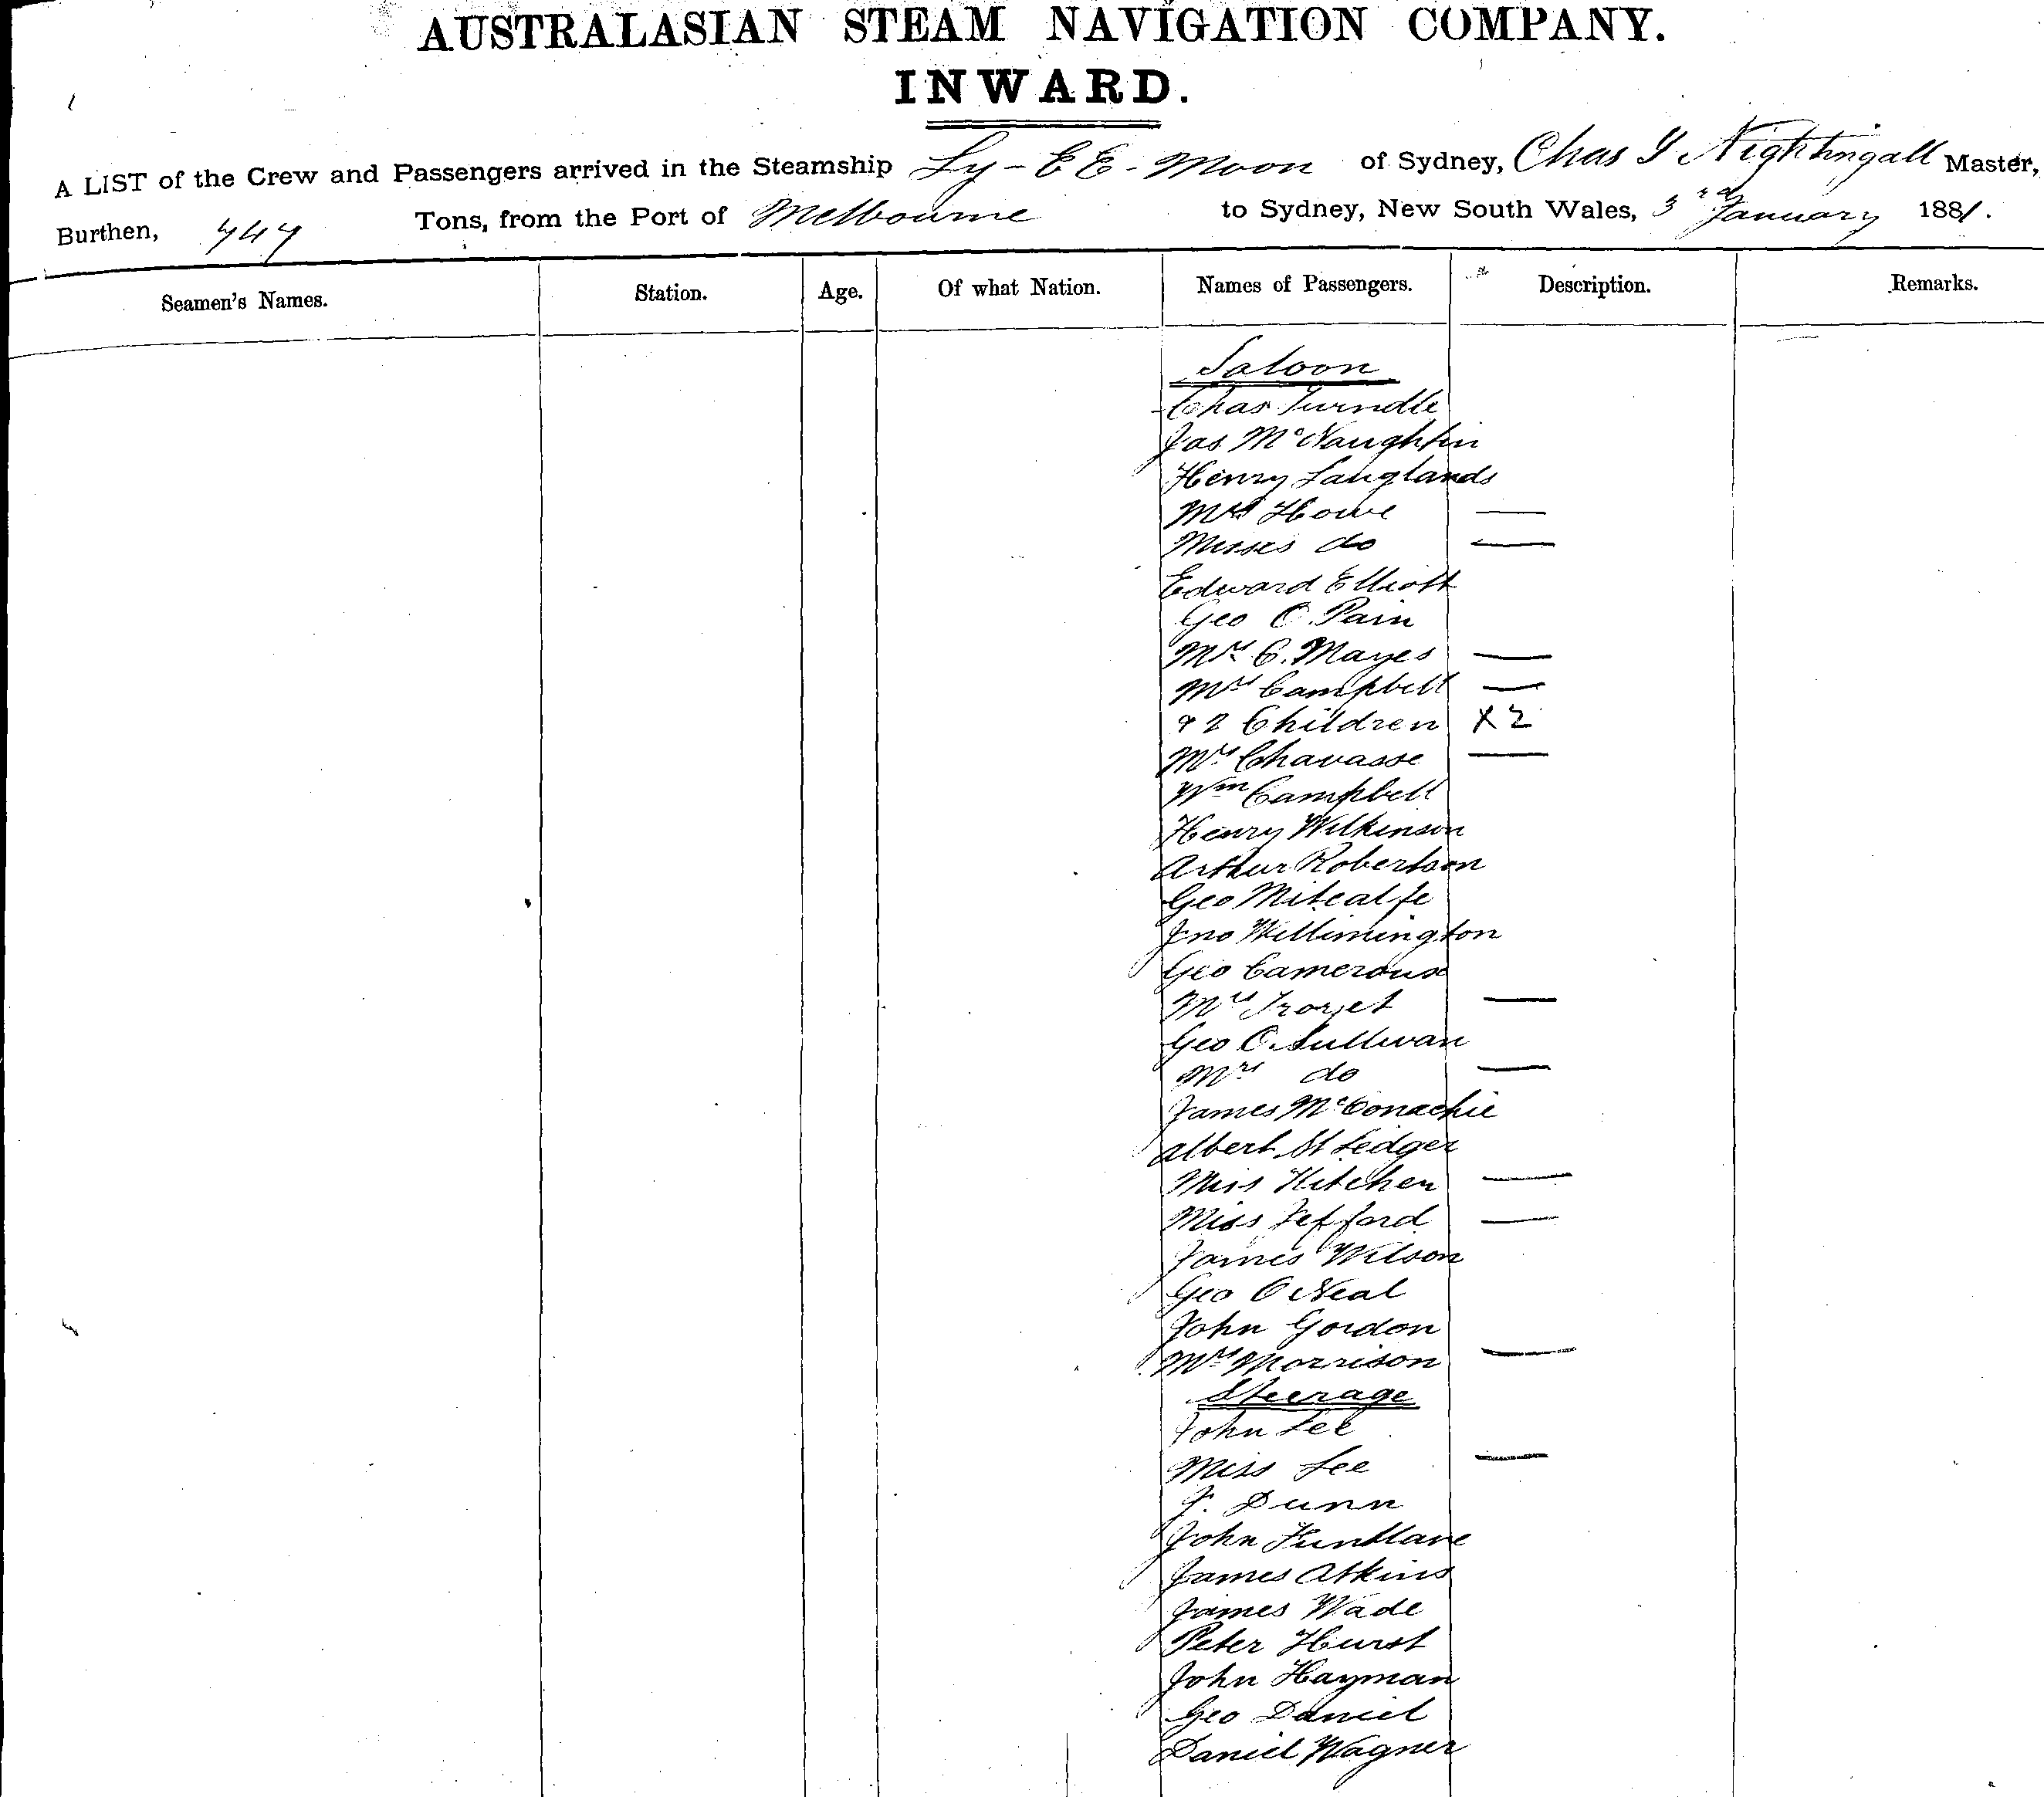 AUSTRALASIAN STEAM NAVIGATION COMPANY.
INWARD.
A LIST of the Crew and Passengers arrived in the Steamship Ly-EE-Moon of Sydney, Chas Nightingall Master,
Burthen, 747 Tons, from the Port of Melbourne to Sydney, New South Wales, 3rd January 1881.
Seamen's Names. Station. Age. Of what Nation. Names of Passengers. Description. Remarks.
Saloon
Chas Turndle
Jas McNaughtin
Henry Langlands
Mrs Howe —
Misses do —
Edward Elliott
Geo C. Pain
Mrs C. Mayes —
Mrs Campbell —
& 2 Children X 2
Mrs Chavasse —
Wm Campbell
Henry Wilkinson
Arthur Robertson
Geo Mitcalfe
Jno Willimington
Geo Camerouse
Mrs —
Geo O.Sullivan
Mrs do —
James McConachie
Albert St Ledger
Miss Kitchen —
Miss Jefford —
James Wilson
Geo O Neal
John Gordon
Mrs Morrison —
Steerage
John Lee
Miss Lee —
J. Dunn
John
James Atkins
James Wade
Peter Hurst
John Hayman
Geo Daniel
Daniel Wagner